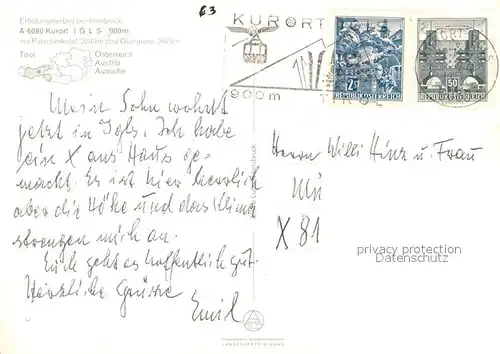 Erholungsgebiet bei Innsbruck
A-6080 Kurort IGLS 900m
mit Patscherkofel, 2247m und Glungezer, 2679m
Tirol
Österreich
Austria
Autriche
63
KURORT
900m
TIROL
2
REPUBLIK ÖSTERREICH
50
REPUBLIK ÖSTERREICH
Mein Sohn wohnt
jetzt in Igls. Ich habe
ein X ans Haus ge-
macht. Es ist hier herrlich
aber die Höhe und das Klima
strengen mich an.
Euch geht es hoffentlich gut.
Herzliche Grüsse
Emil
Herrn Willi Hinz u. Frau
Mü
X 81
privacy protection
Datenschutz
LANDESVERTEIDIGUNG